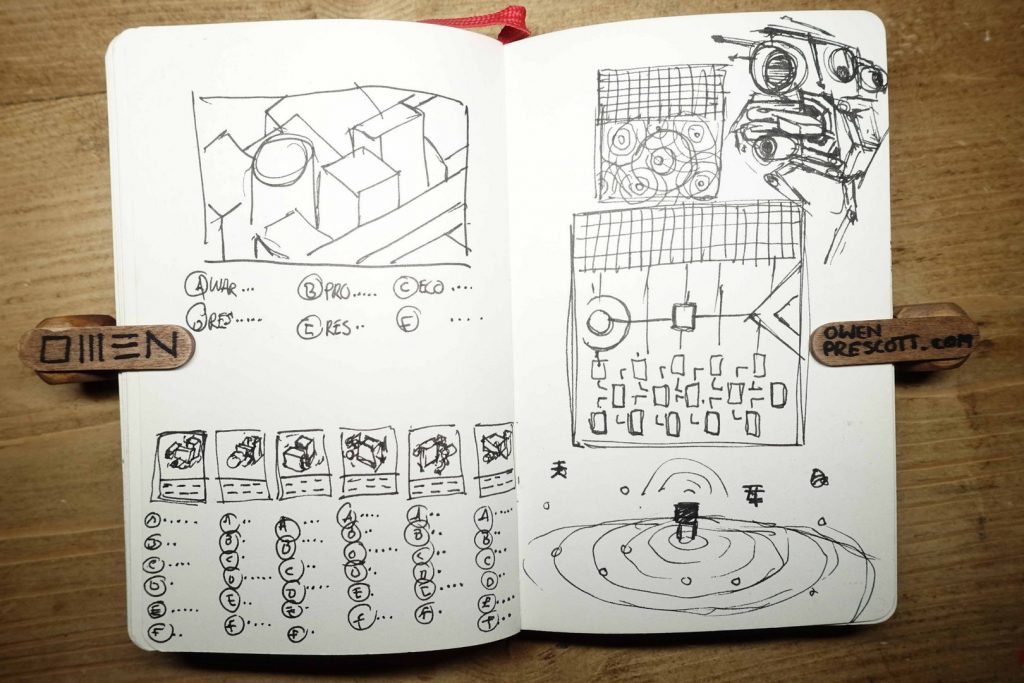 OWEN
A WAR ... B PRO..... C ECO ....
D RES..... E RES.. F ....
A A A A A A
B B B B B B
C C C C C C
D D D D D D
E E E E E E
F F F F F F
OWEN
PRESCOTT.COM